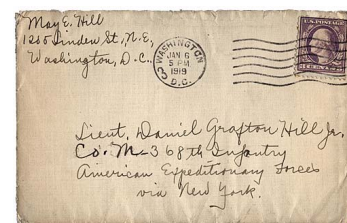 May E. Hill
1205 Linden St., N.E,
Washington, D.C.
WASHINGTON
JAN 6
5 PM
1919
D.C.
U.S. POSTAGE
Lieut. Daniel Grafton Hill Jr.
Co. M-368th Infantry
American Expeditionary Forces
via New York.